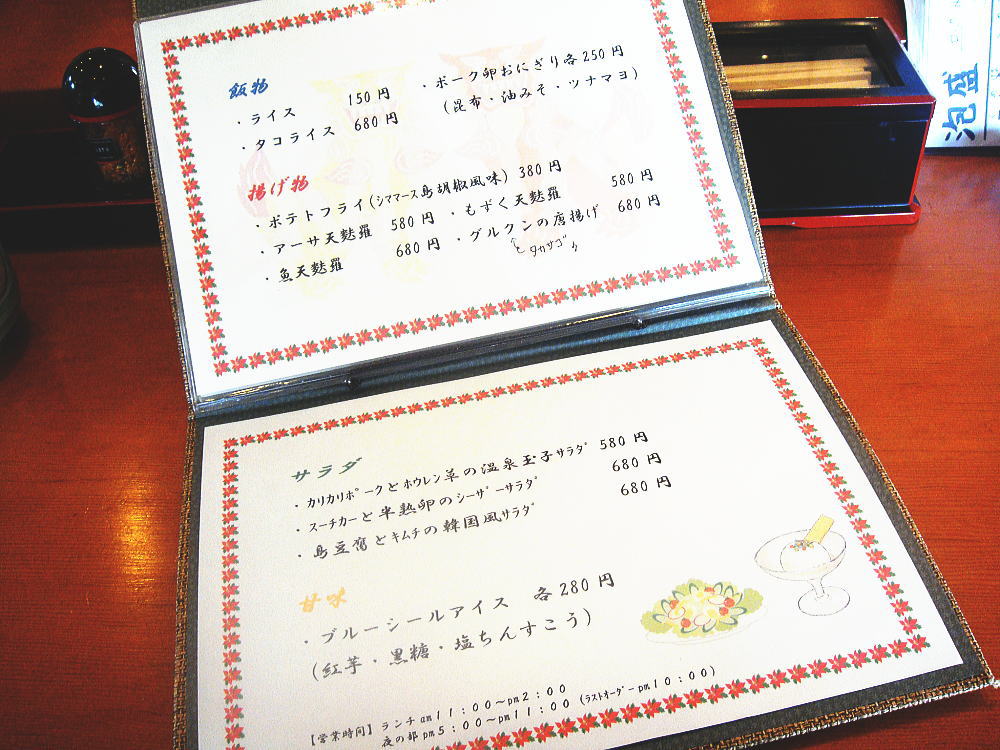 飯物
・ライス 150円
・タコライス 680円
・ポーク卵おにぎり各250円
(昆布・油みそ・ツナマヨ)
揚げ物
・ポテトフライ(シママース島胡椒風味) 380円
・アーサ天麩羅 580円
・もずく天麩羅 580円
・魚天麩羅 680円
・グルクンの唐揚げ 680円
タカサゴ
サラダ
・カリカリポークとホウレン草の温泉玉子サラダ 580円
・スーチカーと半熟卵のシーザーサラダ 680円
・島豆腐とキムチの韓国風サラダ 680円
甘味
・ブルーシールアイス 各280円
(紅芋・黒糖・塩ちんすこう)
【営業時間】ランチam11:00~pm2:00
夜の部pm5:00~pm11:00(ラストオーダーpm10:00)
泡盛